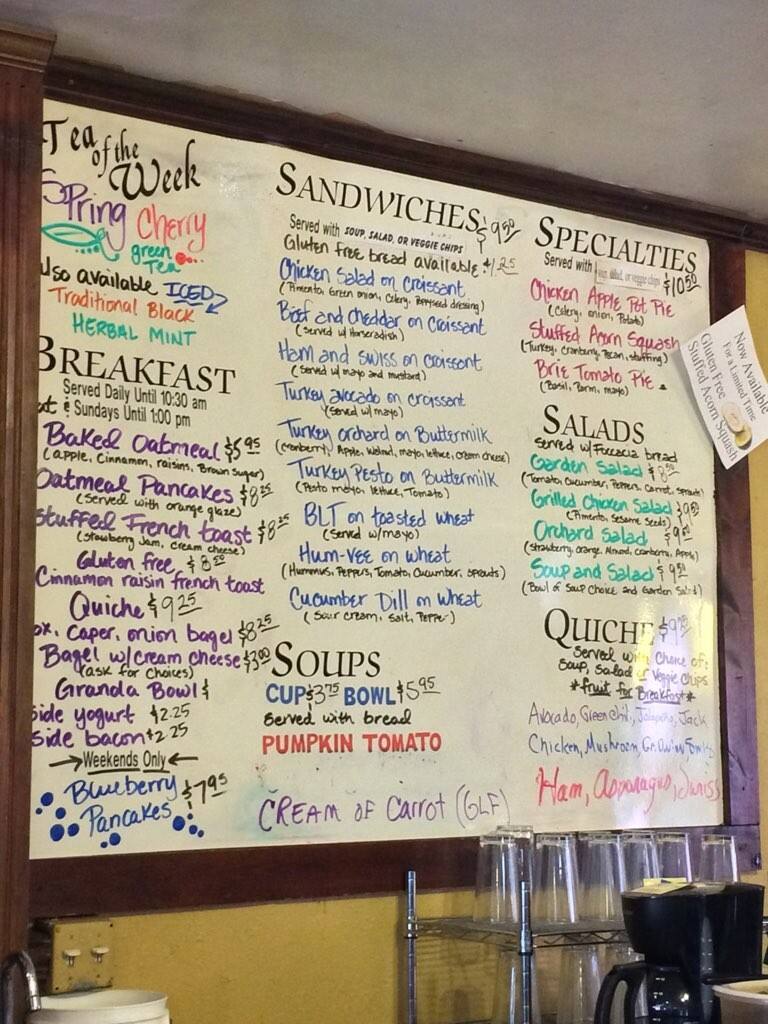 Tea of the Week
Spring Cherry
green Tea
also available ICED
Traditional Black
HERBAL MINT
BREAKFAST
Served Daily Until 10:30 am
& Sundays Until 1:00 pm
Baked Oatmeal $5.95
(apple, Cinnamon, raisins, Brown Sugar)
Oatmeal Pancakes $8.25
(Served with orange glaze)
Stuffed French toast $8.25
(strawberry Jam, cream cheese)
Gluten free $8.50
Cinnamon raisin french toast
Quiche $9.25
ox, caper, onion bagel $8.25
Bagel w/cream cheese $3.00
(ask for choices)
Granola Bowl $
side yogurt $2.25
side bacon $2.25
Weekends Only
Blueberry Pancakes $7.95
SANDWICHES $9.50
Served with SOUP, SALAD, OR VEGGIE CHIPS
Gluten free bread available $1.25
Chicken Salad on Croissant
(Pimento, Green onion, Celery, Poppyseed dressing)
Beef and cheddar on Croissant
(Served w/ Horseradish)
Ham and swiss on croissant
(Served w/mayo and mustard)
Turkey avocado on croissant
(served w/mayo)
Turkey orchard on Buttermilk
(cranberry, Apple, Walnut, mayo, lettuce, cream cheese)
Turkey Pesto on Buttermilk
(Pesto mayo, lettuce, Tomato)
BLT on toasted wheat
(Served w/mayo)
Hum-vee on wheat
(Hummus, Peppers, Tomato, Cucumber, sprouts)
Cucumber Dill on wheat
(Sour cream, Salt, Pepper)
SOUPS
CUP $3.75 BOWL $5.95
Served with bread
PUMPKIN TOMATO
CREAM OF Carrot (GLF)
SPECIALTIES
Served with soup, salad, or veggie chips $10.50
Chicken Apple Pot Pie
(Celery, onion, Potato)
Stuffed Acorn Squash
(Turkey, cranberry, Pecan, stuffing)
Brie Tomato Pie
(Basil, Parm, mayo)
SALADS
served w/Foccacia bread
Garden Salad $8.50
(Tomato, Cucumber, Peppers, Carrot, sprouts)
Grilled Chicken Salad 9.50
(Pimento, Sesame Seeds)
Orchard Salad $9.50
(Strawberry, orange, Almond, cranberry, Apple)
Soup and Salad $9.50
(Bowl of Soup Choice and Garden Salad)
QUICHE
Served with Choice of:
Soup, Salad or Veggie Chips
*fruit for Breakfast*
Avocado, Green Chili, Jalapeno, Jack
Chicken, Mushroom, Gr. Onion
Ham, Asparagus, Swiss
Now Available
For a Limited Time
Gluten Free
Stuffed Acorn Squash